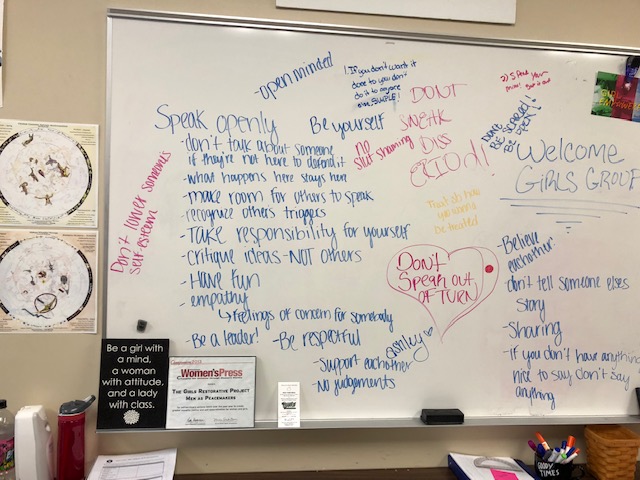 -open minded
1. If you don't want it
done to you don't
do it to anyone
else. SIMPLE!
DON'T
SNEAK
DISS
Speak openly
Be yourself
No
slut shaming
-don't talk about someone
if they're not here to defend it
-what happens here stays here
-make room for others to speak
-recognize others triggers
-Take responsibility for yourself
-critique ideas-NOT others
-Have fun
-empathy
↳feelings of concern for somebody
-Be a leader!
-Be respectful
-Support eachother
-No judgements
ashley
Don't lower someone's
self-esteem
Treat ah how
you wanna
be treated
Don't
Speak out
OF TURN
2) Speak your
mind!
Don't
BE SCARED!
Welcome
GIRLS GROUP
-Believe
eachother.
-don't tell someone elses
story
-Sharing
-If you don't have anything
nice to say, don't say
anything
Be a girl with
a mind,
a woman
with attitude,
and a lady
with class.
Women's Press
The Girls Restorative Project
Men as Peacemakers
GOODY
TIMES